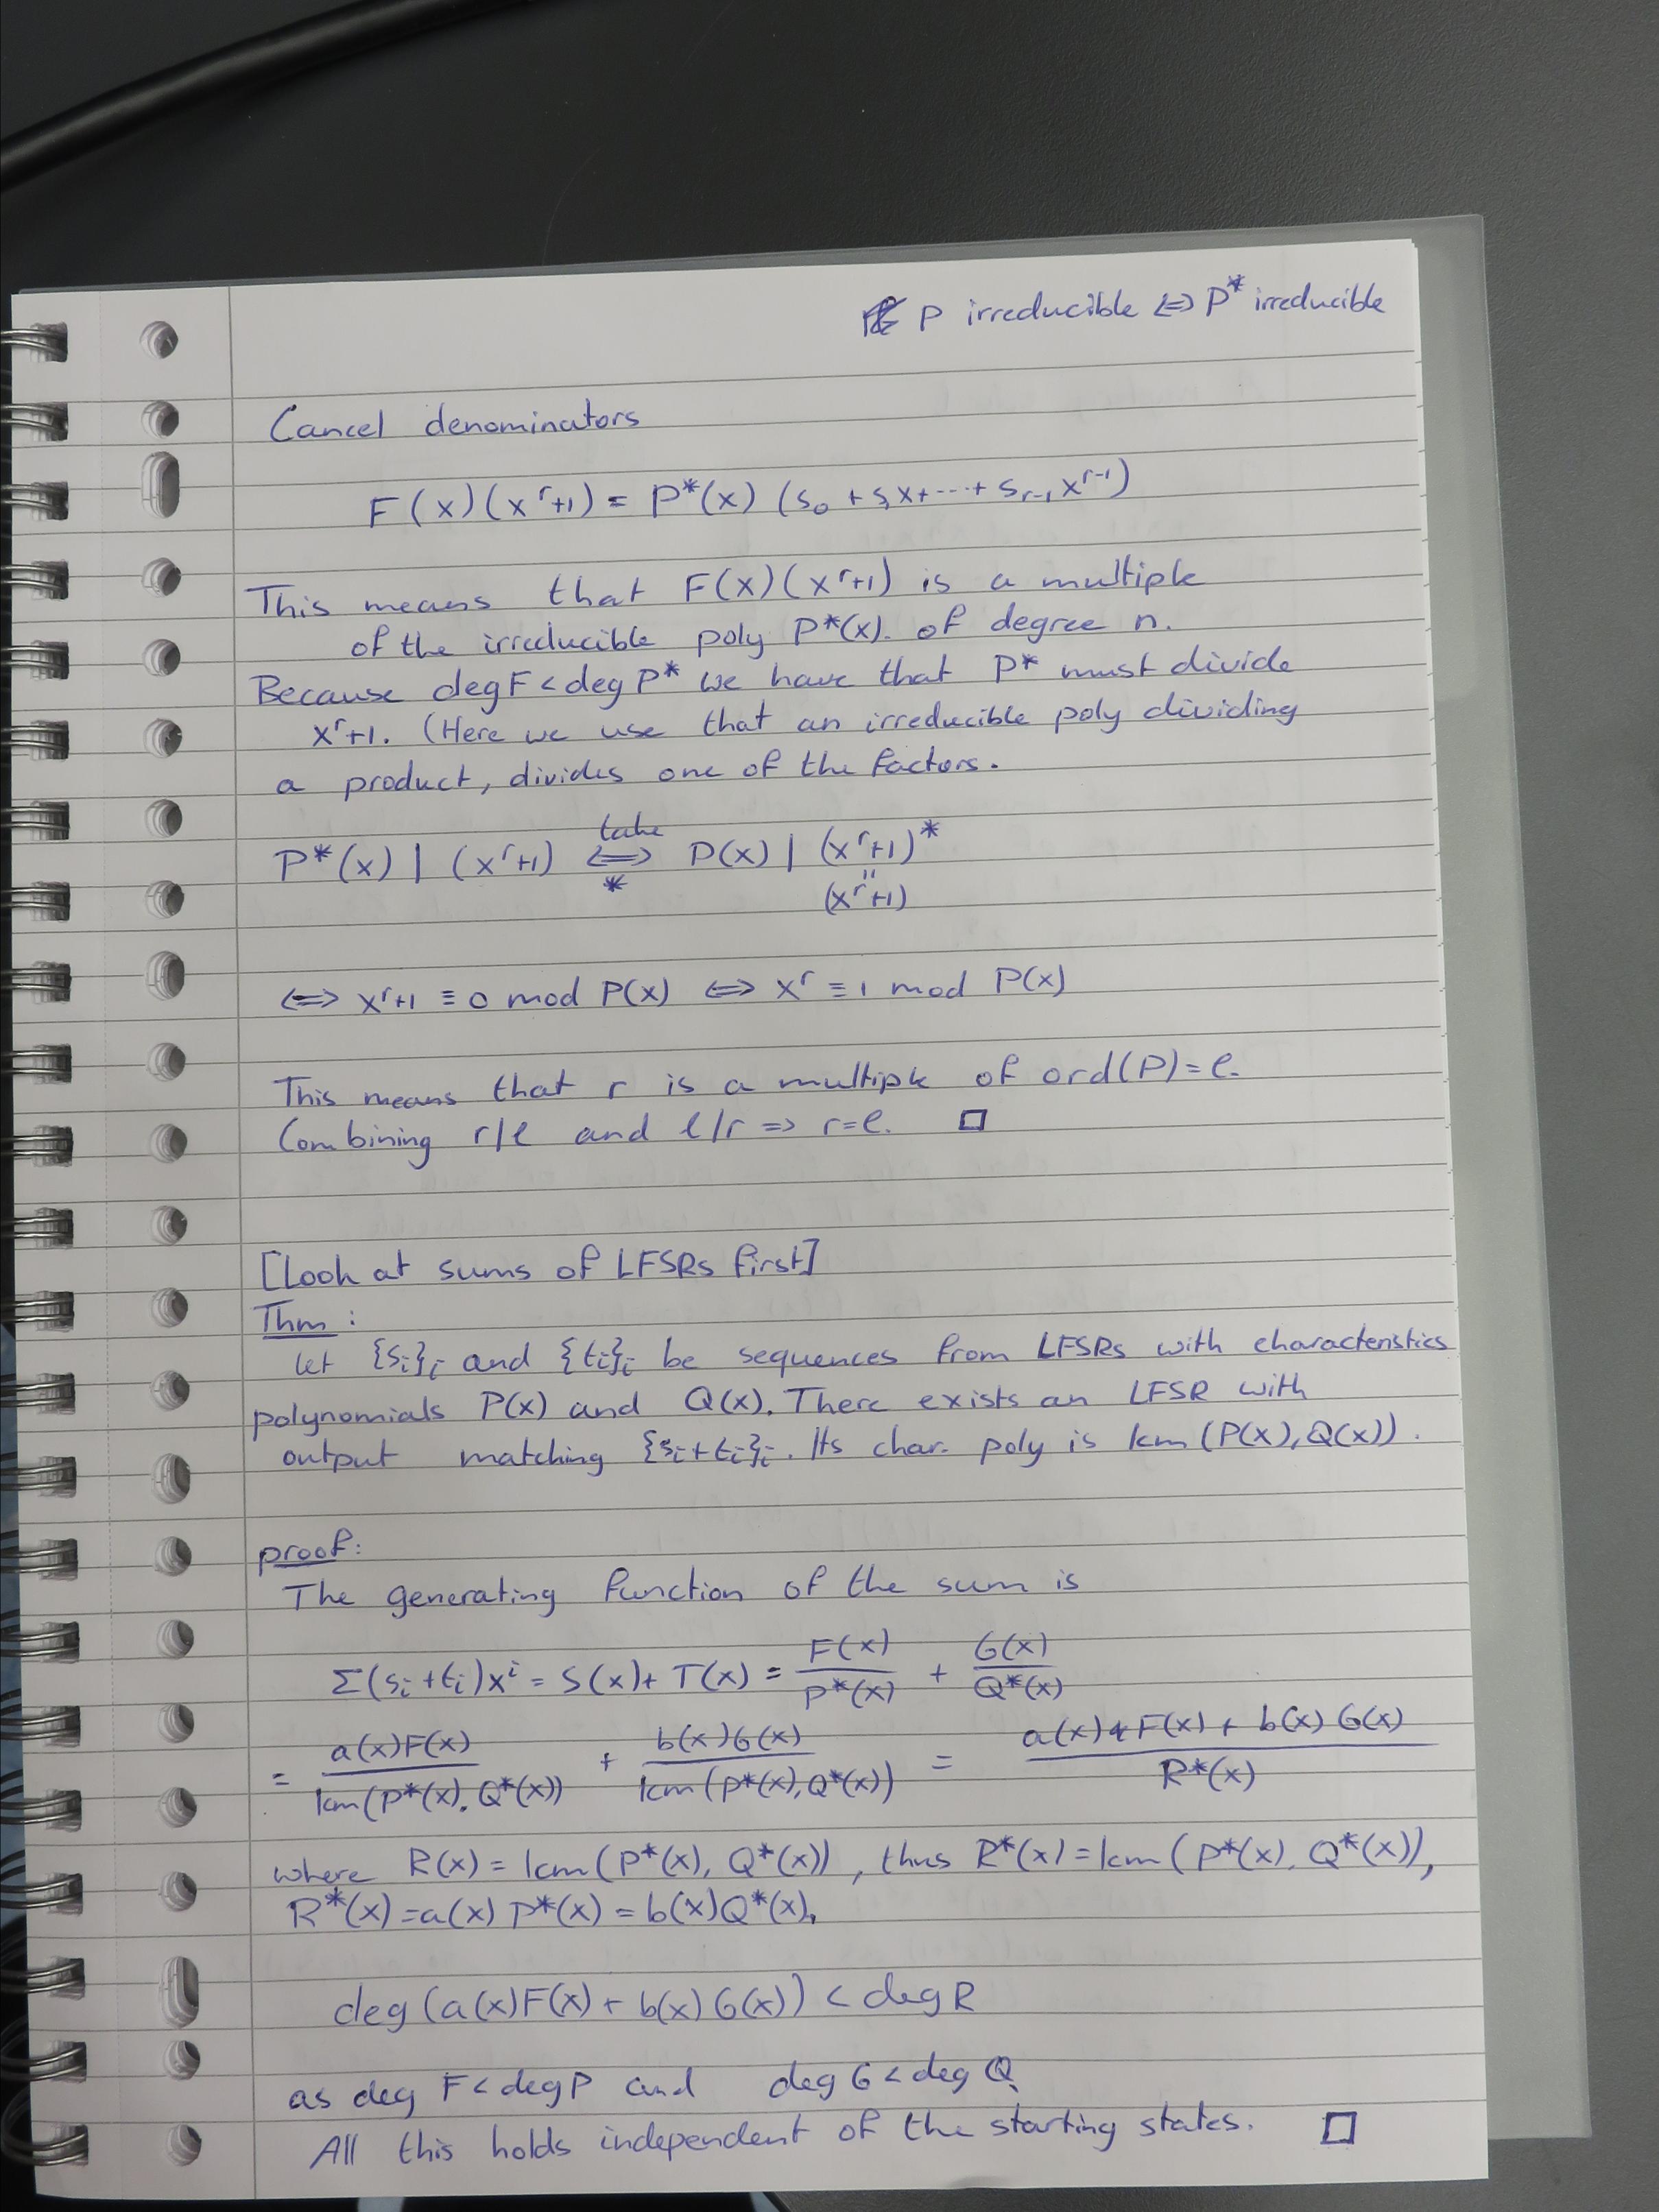 P irreducible ⟺ P* irreducible
Cancel denominators
F(x)(x^r+1) = P*(x) (s_0 + s_1x+⋯+ s_{r-1}x^{r-1})
This means that F(x)(x^r+1) is a multiple
of the irreducible poly P*(x). of degree n.
Because deg F < deg P* we have that P* must divide
x^r+1. (Here we use that an irreducible poly dividing
a product, divides one of the factors.
take
P*(x) | (x^r+1) ⟺ P(x) | (x^r+1)*
* "
(x^r+1)
⟺ x^r+1 ≡ 0 mod P(x) ⟺ x^r ≡ 1 mod P(x)
This means that r is a multiple of ord(P)=ℓ.
Combining r/ℓ and ℓ/r => r=ℓ. □
[Look at sums of LFSRs first]
Thm:
let {s_i}_i and {t_i}_i be sequences from LFSRs with characteristics
polynomials P(x) and Q(x). There exists an LFSR with
output matching {s_i+t_i}_i. Its char. poly is lcm(P(x),Q(x)).
proof:
The generating function of the sum is
Σ(s_i+t_i)x^i = S(x)+T(x) = F(x)/P*(x) + G(x)/Q*(x)
= a(x)F(x)/lcm(P*(x),Q*(x)) + b(x)G(x)/lcm(P*(x),Q*(x)) = a(x)F(x) + b(x)G(x)/R*(x)
where R(x) = lcm(P*(x), Q*(x)), thus R*(x)=lcm(P*(x), Q*(x)),
R*(x)=a(x)P*(x)=b(x)Q*(x),
deg(a(x)F(x)+b(x)G(x)) < deg R
as deg F<deg P and deg G<deg Q
All this holds independent of the starting states. □